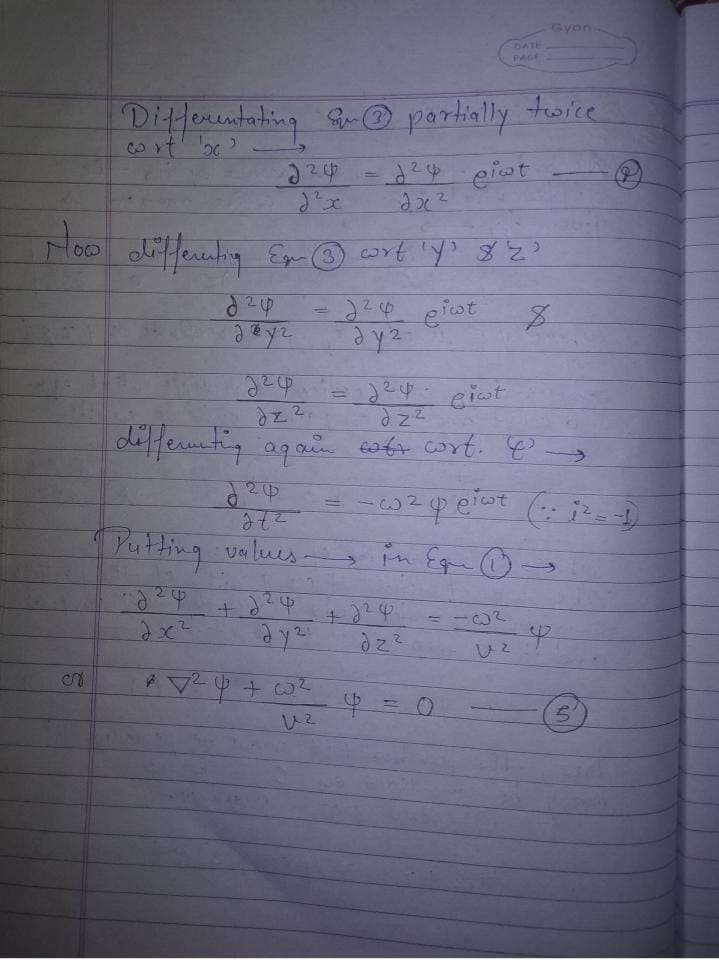 Gyan
DATE
PAGE
Differentating Eqn ③ partially twice
wrt 'x' ⟶
∂²ψ/∂²x = ∂²ψ/∂x² · e^iωt —
Now differenting Eqn ③ wrt 'y' & z'
∂²ψ/∂y² = ∂²ψ/∂y² e^iωt &
∂²ψ/∂z² = ∂²ψ/∂z² e^iωt
differenting again wrt. t' →
∂²ψ/∂t² = -ω²ψ e^iωt (∵ i² = -1)
Putting values → in Eqn ① →
∂²ψ/∂x² + ∂²ψ/∂y² + ∂²ψ/∂z² = -ω²/v² ψ
or ∇²ψ + ω²/v² ψ = 0 — ⑤